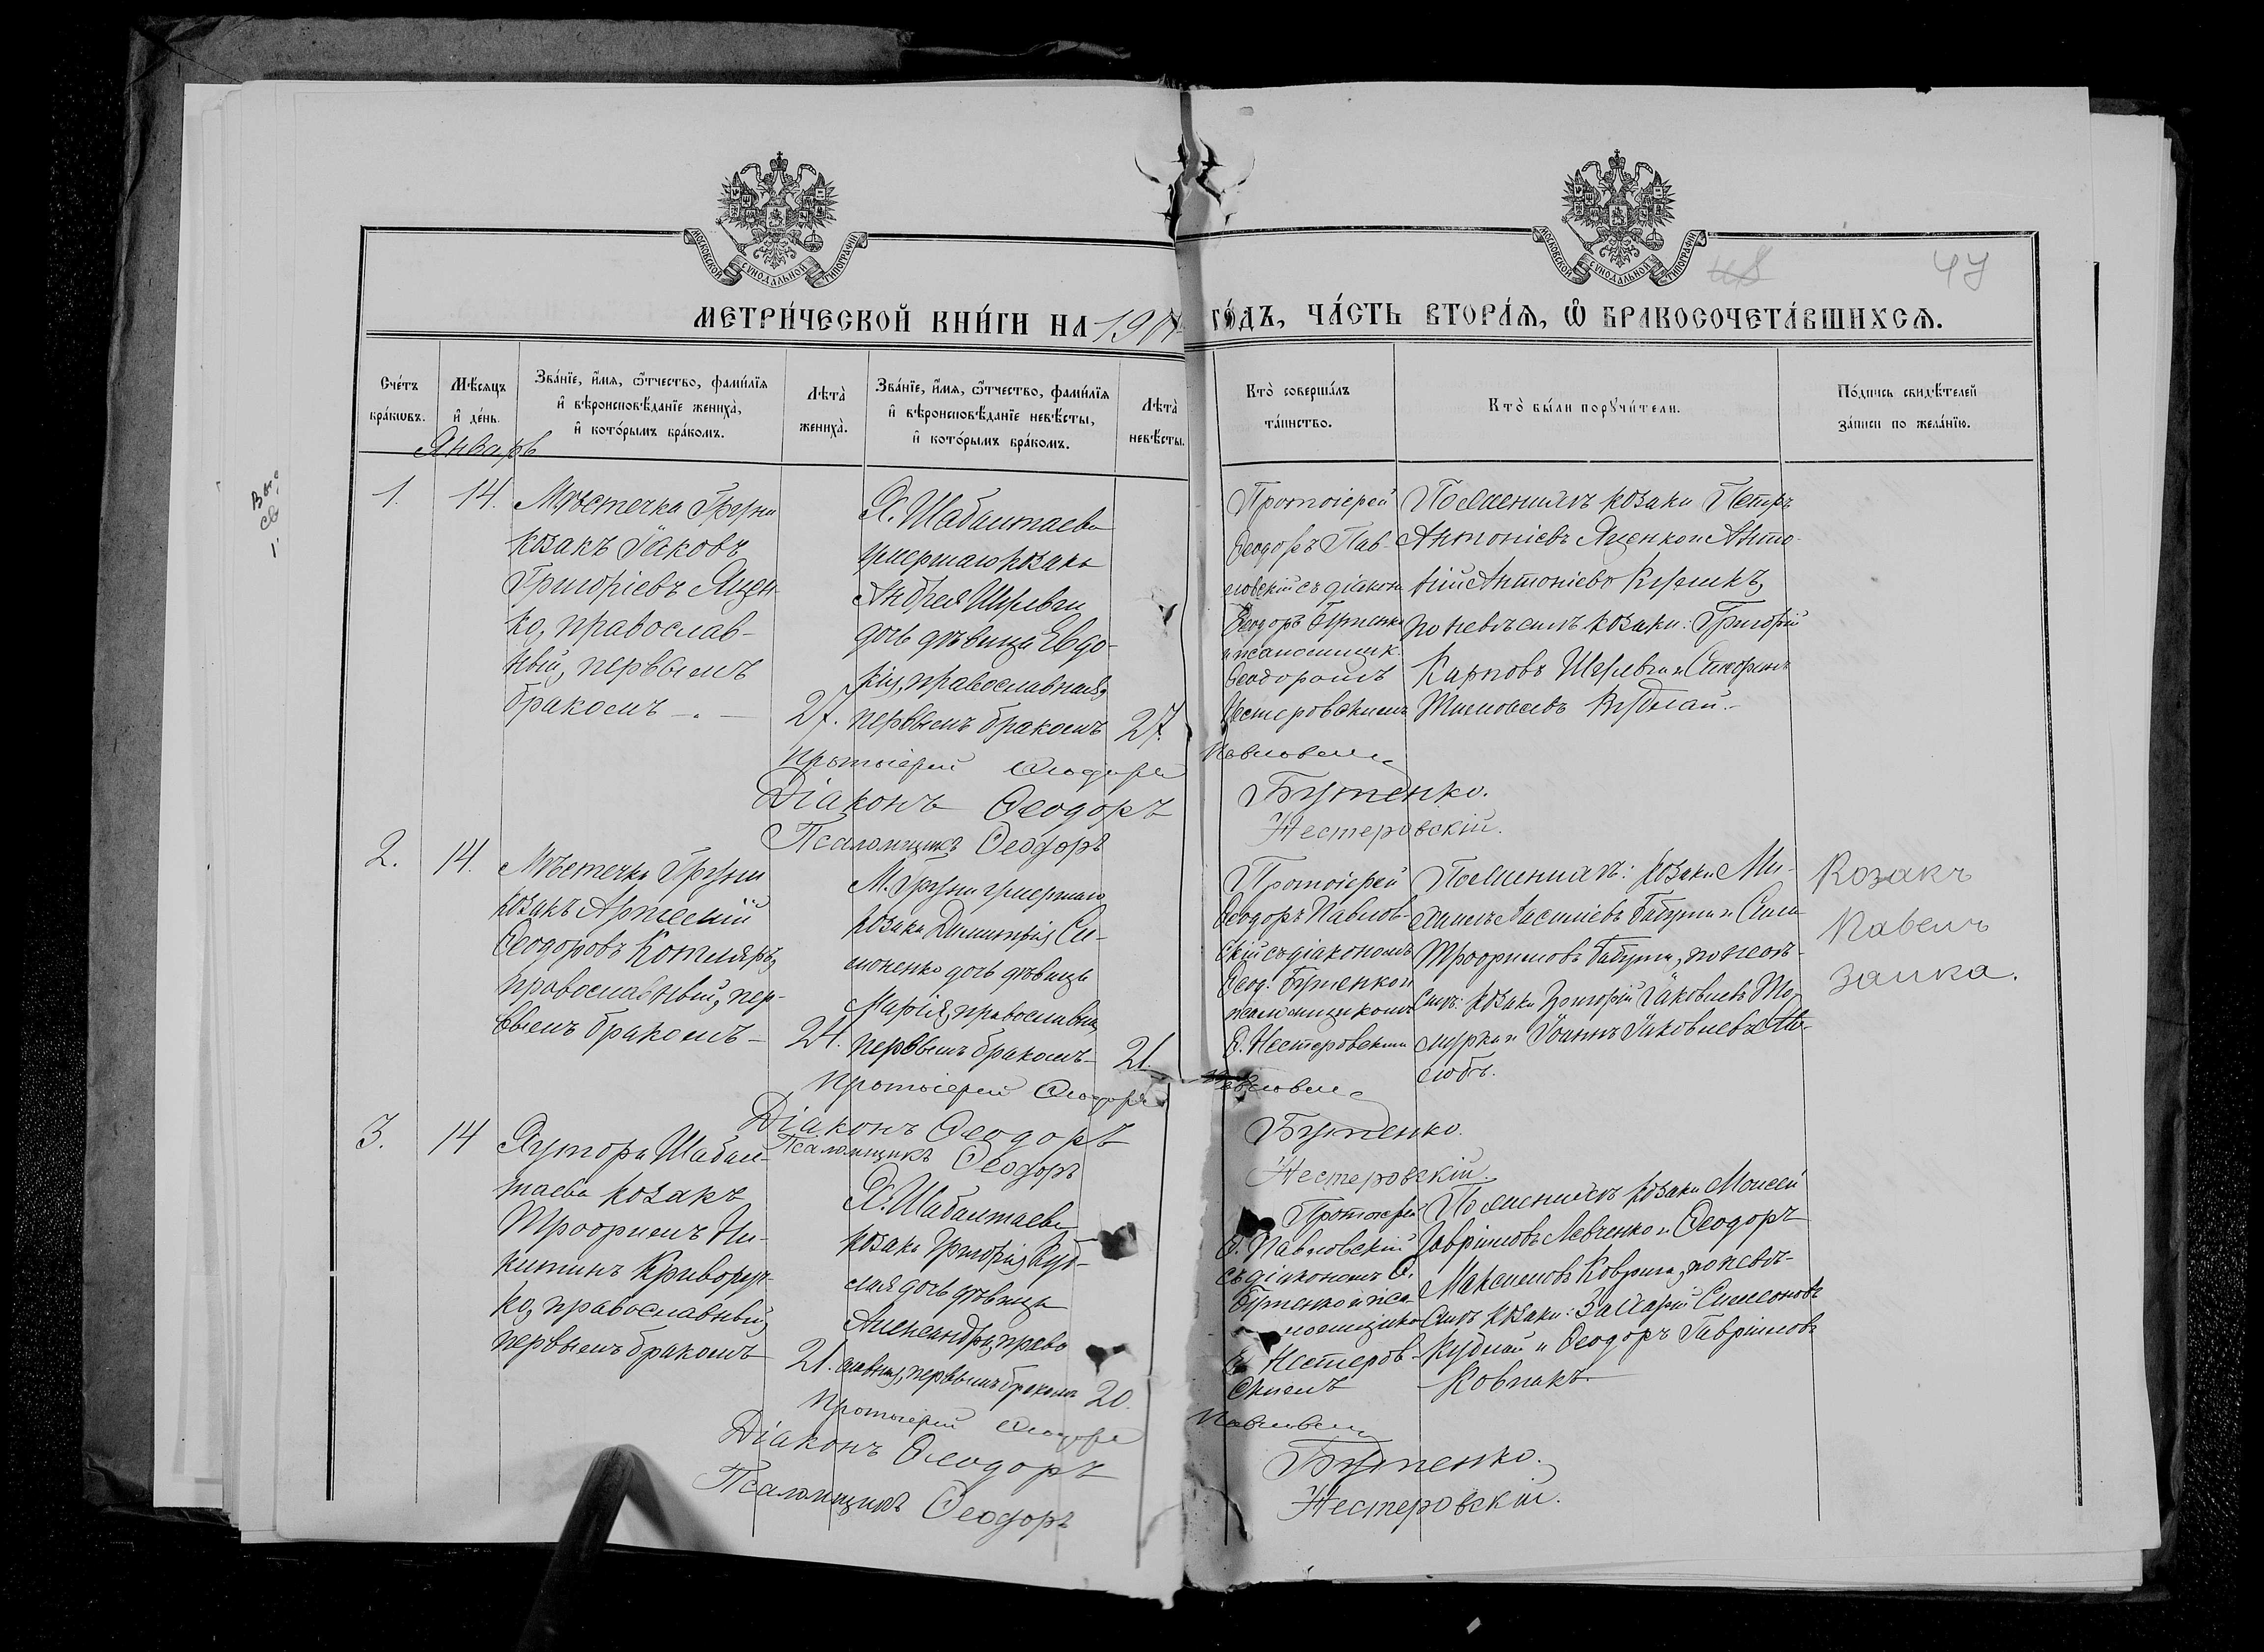 МОСКОВСКОЙ СѴНОДАЛЬНОЙ ТИПОГРАФІИ
МОСКОВСКОЙ СѴНОДАЛЬНОЙ ТИПОГРАФІИ
47
МЕТРИ́ЧЕСКОЙ КНИ́ГИ НА 190
ГО́ДЪ, ЧА́СТЬ ВТОРА́Ѧ, Ѽ БРАКОСОЧЕТА́ВШИХСѦ.
Сче́тъ бра́кѡвъ.
Мѣ́сѧцъ и҆ де́нь.
Зва́нїе, и҆́мѧ, ѻ҆́тчество, фами́лїѧ
и҆ вѣроисповѣ́данїе жениха̀,
и҆ кото́рымъ бра́комъ.
Лѣта̀ жениха̀.
Зва́нїе, и҆́мѧ, ѻ҆́тчество, фами́лїѧ
и҆ вѣроисповѣ́данїе невѣ́сты,
и҆ кото́рымъ бра́комъ.
Лѣта̀ невѣ́сты.
Кто̀ соверша́лъ та́инство.
Кто̀ бы́ли порꙋчи́тели.
По́дпись свидѣ́телей
за́писи по жела́нїю.
Январь
1.
14.
Мѣстечка Груни
козакъ Іаковъ
Григоріевъ Яцен-
ко, православ-
ный, первымъ
бракомъ
27.
Х. Шабалтаева
умершаго козака
Андрея Шульги
дочь дѣвица Евдо-
кія, православная,
первымъ бракомъ
27.
Протоіерей
Ѳеодоръ Пав-
ловскій съ діакон
Ѳеодоръ Бутенко
и псаломщик.
Ѳеодоромъ
Нестеровскимъ
По женихѣ козаки Петръ
Антоніевъ Яценко и Анто-
ній Антоніевъ
по невѣстѣ козаки: Григорій
Карповъ Шульга и
Тимоѳеевъ Кудлай.
Протоіерей Ѳеодоръ Павловскій
Діаконъ Ѳеодоръ Бутенко.
Псаломщикъ Ѳеодоръ Нестеровскій.
2.
14.
Мѣстечка Груни
козакъ Артемій
Ѳеодоровъ Котляръ,
православный, пер-
вымъ бракомъ
24.
М. Груни умершаго
козака Димитрія Си-
моненко дочь дѣвица
Марія, православная,
первымъ бракомъ
21.
Протоіерей
Ѳеодоръ Павлов-
скій съ діакономъ
Ѳеод. Бутенко и
псаломщикомъ
Ѳ. Нестеровскимъ
По женихѣ: козаки Ми-
Трофимовъ по невѣ-
стѣ: козаки Григорій Іаковлевъ
и Іоаннъ Іаковлевъ
Козакъ
Павелъ
Заика.
Протоіерей Ѳеодоръ Павловскій
Діаконъ Ѳеодоръ Бутенко.
Псаломщикъ Ѳеодоръ Нестеровскій.
3.
14
Хутора Шабал-
таева козакъ
Трофимъ Ни-
китинъ Криворуч-
ко, православный,
первымъ бракомъ
21.
Х. Шабалтаева
козака Григорія Куд-
лая дочь дѣвица
Александра, право
славная, первымъ бракомъ
20.
Протоіерей
Ѳ. Павловскій
съ діакономъ Ѳ.
Бутенко и пса-
ломщико
Ѳ. Нестеров-
скимъ
По женихѣ козаки Моисей
Гавріиловъ Левченко и Ѳеодоръ
Максимовъ Коврига, по невѣ-
стѣ козаки: Симеоновъ
Кудлай и Ѳеодоръ Гавріиловъ
Ковпакъ.
Протоіерей Ѳеодоръ Павловскій
Діаконъ Ѳеодоръ Бутенко.
Псаломщикъ Ѳеодоръ Нестеровскій.